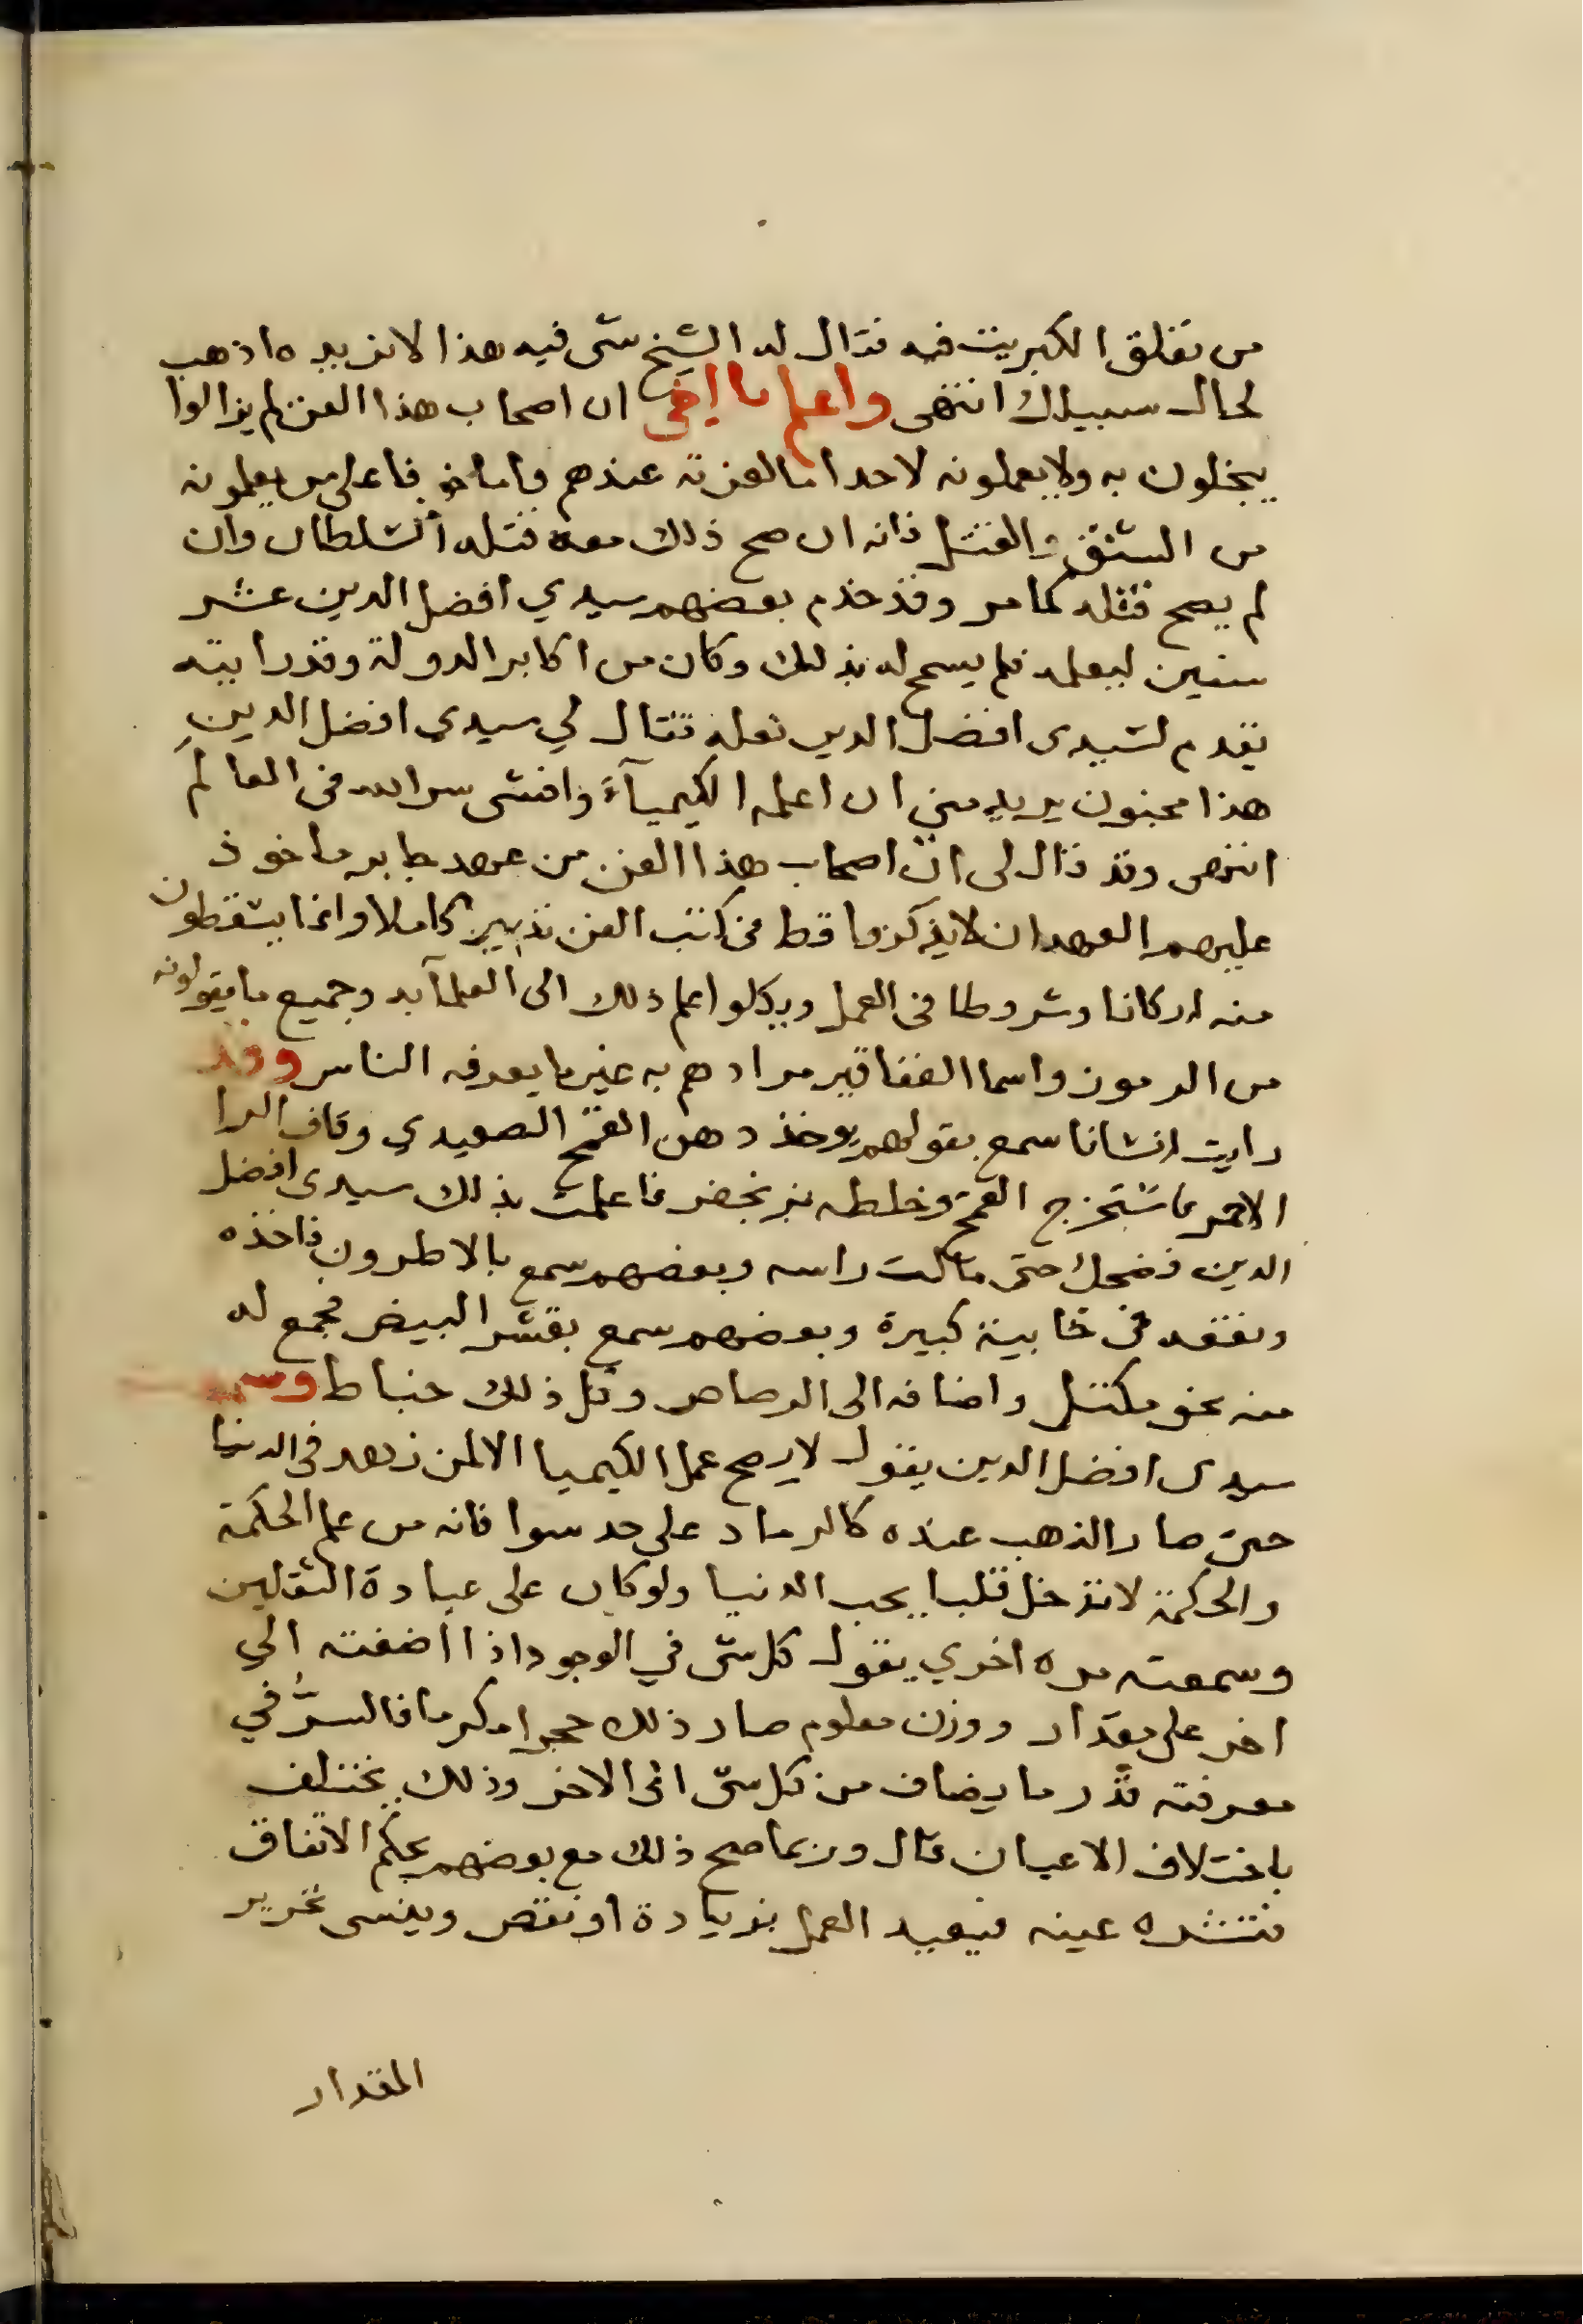 من تفلق الكبريت فيه فقال له الشيخ شي فيه هذا لا نريده اذهب
لحال سبيلك انتهى واعلم يا اخي ان اصحاب هذا الفن لم يزالوا
يبخلون به ولا يعملونه لاحد اما لعزته عندهم واما خوفا على من يعلمونه
من الشنق والقتل فانه ان صح ذلك معه قتله السلطان وان
لم يصح قتله كما مر وقد خدم بعضهم سيدي افضل الدين عشر
سنين ليعلمه فلم يسمح له بذلك وكان من اكابر الدولة وقد رايته
يقدم لسيدى افضل الدين نعله فقال لي سيدى افضل الدين
هذا مجنون يريد مني ان اعلمه الكيمياء وافشى سر الله في العالم
انتهى وقد قال لى ان اصحاب هذا الفن من عهد جابر ماخوذ
عليهم العهد ان لا يذكروا قط في كتب الفن تدبير كاملا وانما يسقطون
منه اركانا وشروطا في العمل ويكلوا علم ذلك الى العلماء به وجميع ما يقولونه
من الرموز واسما العقاقير مرادهم به غير ما يعرفه الناس وقد
رايت انسانا سمع بقولهم يوخذ دهن القمح الصعيدي وقاف الرا
الاحمر فاستخرج القمح وخلطه بزنجفر فاعلمت بذلك سيدى افضل
الدين فضحك حتى مالت راسه وبعضهم سمع بالاطرون فاخذه
ونقعه في خابية كبيرة وبعضهم سمع بقشر البيض فجمع له
منه نحو مكتل واضافه الى الرصاص وكل ذلك خباط وسمعت
سيدى افضل الدين يقول لا يصح عمل الكيميا الا لمن زهد في الدنيا
حتى صار الذهب عنده كالرماد على حد سوا فانه من علم الحكمة
والحكمة لا تدخل قلبا يحب الدنيا ولو كان على عبادة الثقلين
وسمعته مره اخري يقول كل شى في الوجود اذا اضفته الي
اخر على مقدار ووزن معلوم صار ذلك حجرا مكرما فالسر في
معرفته قدر ما يضاف من كل شى الى الاخر وذلك يختلف
باختلاف الاعيان قال وربما صح ذلك مع بعضهم بحكم الاتفاق
فتشره عينه فيعيد العمل بزيادة او نقص وينسى تحرير
المقدار